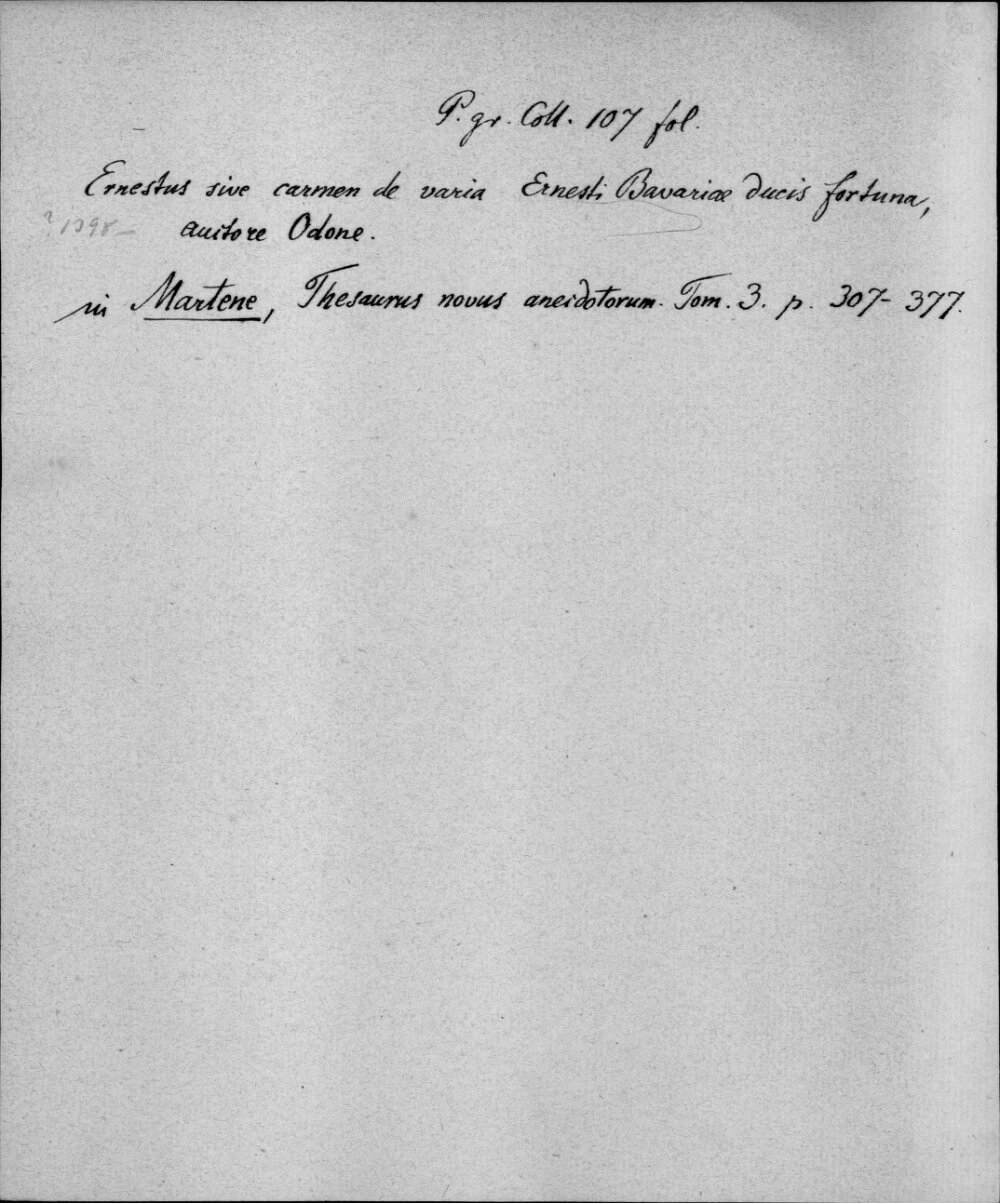 P. gr. Coll. 107 fol.
Ernestus sive carmen de varia Ernesti Bavariae ducis fortuna,
auctore Odone.
in Martene, Thesaurus novus anecdotorum. Tom. 3. p. 307-377.